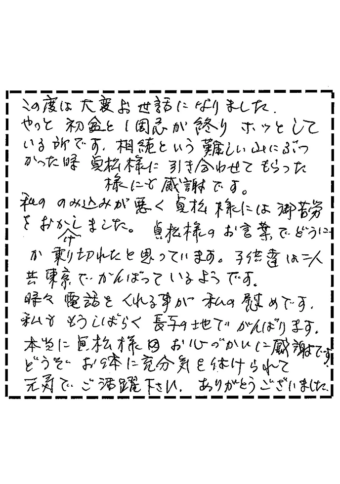 この度は大変お世話になりました。
やっと初盆と1周忌が終り ホッとして
いる所です。相続という難しい山にぶつ
かった時 貞松様に引き合わせてもらった
様にと感謝です。
私の のみ込みが悪く 貞松様には御苦労
をおかけしました。貞松様のお言葉でどうに
か乗り切れたと思っています。子供達は二人
共東京でがんばっているようです。
時々電話をくれる事が私の慰めです。
私ももうしばらく長与の地でがんばります。
本当に貞松様の お心づかいに感謝です。
どうぞ お体に充分気を付けられて
元気でご活躍下さい。ありがとうございました。